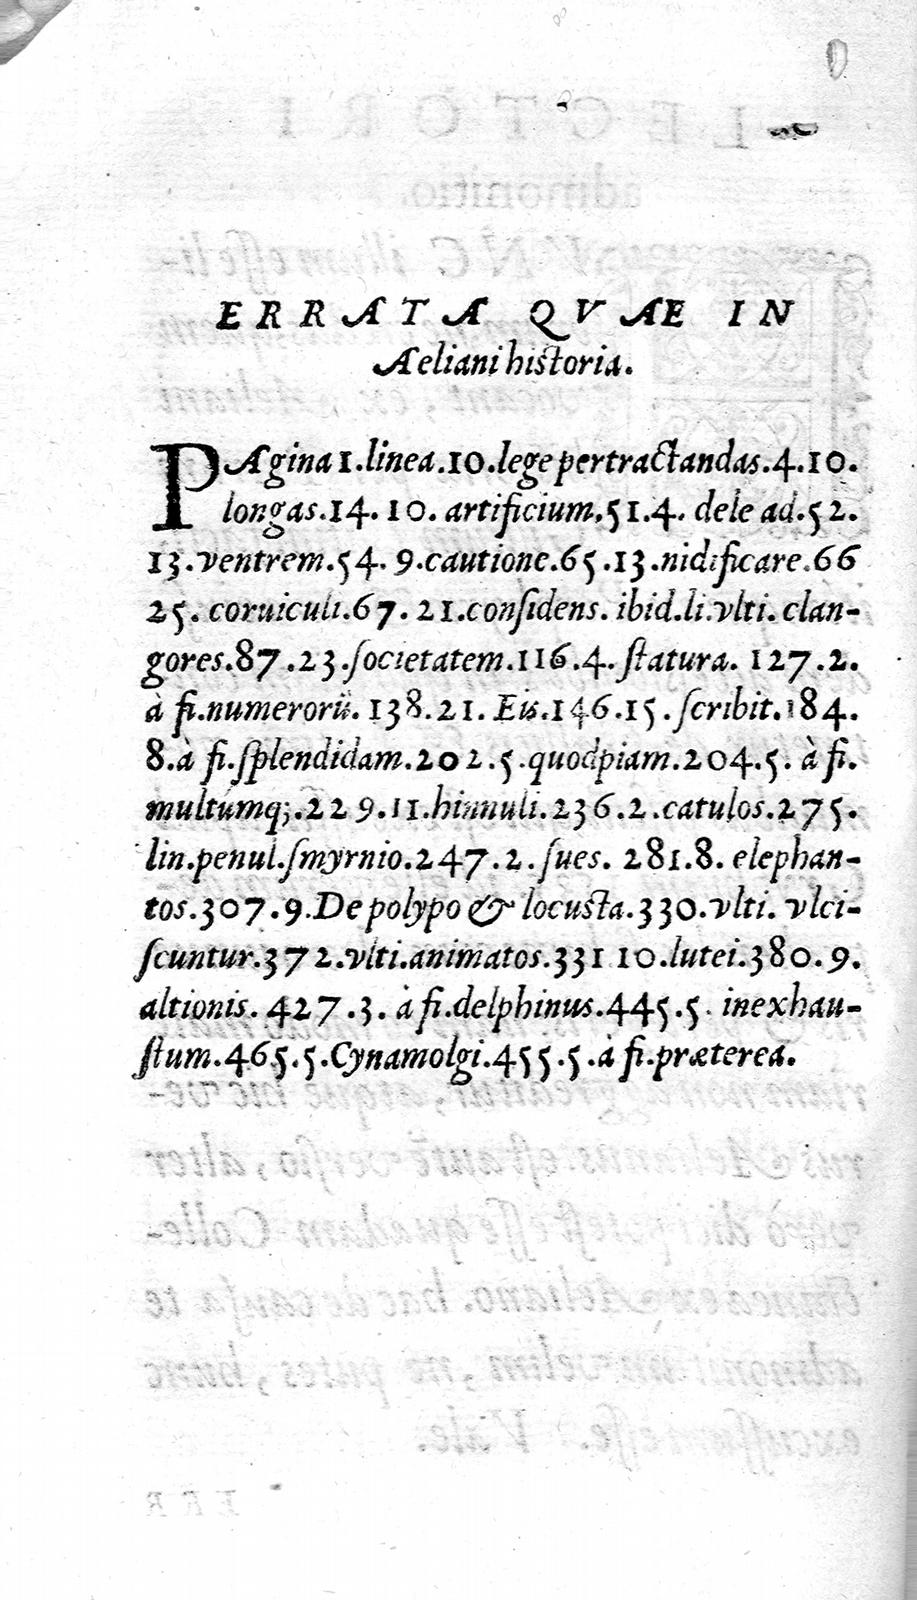 ERRATA QVAE IN
Aeliani historia.
PAgina 1.linea.10.lege pertractandas.4.10.
longas.14.10. artificium.51.4. dele ad.52.
13.ventrem.54.9.cautione.65.13.nidificare.66
25. coruiculi.67.21.conſidens. ibid.li.vlti. clan-
gores.87.23.ſocietatem.116.4. ſtatura. 127.2.
à fi.numerorũ. 138.21. Eis.146.15. ſcribit.184.
8.à fi.ſplendidam.202.5.quodpiam.204.5. à fi.
multumq;.229.11.hinnuli.236.2.catulos.275.
lin.penul.ſmyrnio.247.2.ſues. 281.8. elephan-
tos.307.9.De polypo & locusta.330.vlti. vlci-
ſcuntur.372.vlti.animatos.331 10.lutei.380.9.
altionis. 427.3. à fi.delphinus.445.5. inexhau-
ſtum.465.5.Cynamolgi.455.5.à fi.præterea.